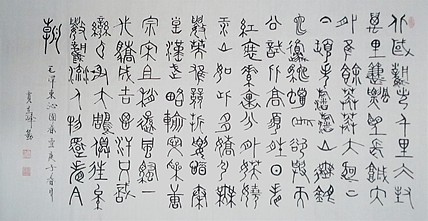 北國風光千里冰封
萬里雪飄望長城內
外惟餘莽莽大河上
下頓失滔滔山舞銀
蛇原馳蠟象欲與天
公試比高須晴日看
紅裝素裹分外妖嬈
江山如此多嬌引無
數英雄競折腰惜秦
皇漢武略輸文采唐
宗宋祖稍遜風騷一
代天驕成吉思汗只
識彎弓射大雕俱往矣
數風流人物還看今
朝
毛澤東沁園春雪庚子春月